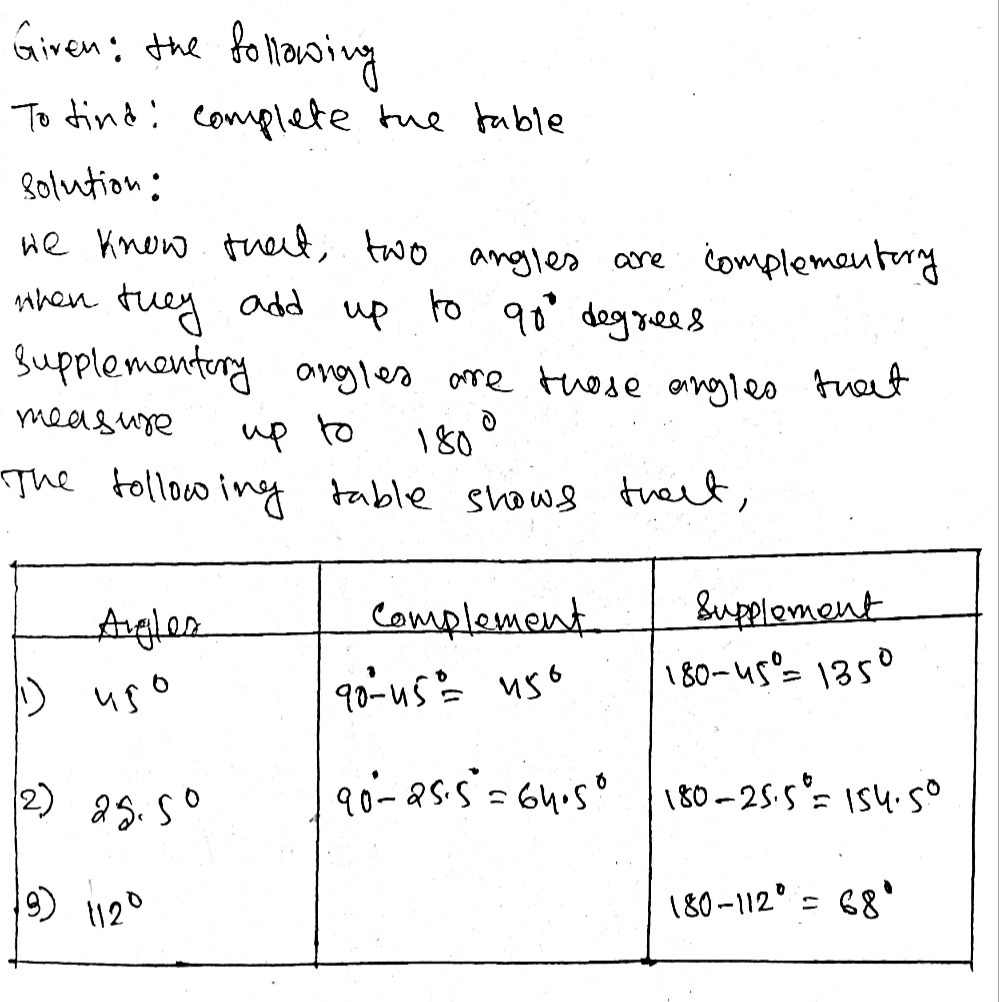 Given: the following
To find: complete the table
Solution:
We know that, two angles are complementary
when they add up to 90° degrees
Supplementary angles are those angles that
measure up to 180°
The following table shows that,
Angles Complement Supplement
1) 45° 90°-45°= 45° 180-45°= 135°
2) 25.5° 90°-25.5°=64.5° 180-25.5°=154.5°
3) 112° 180-112° = 68°